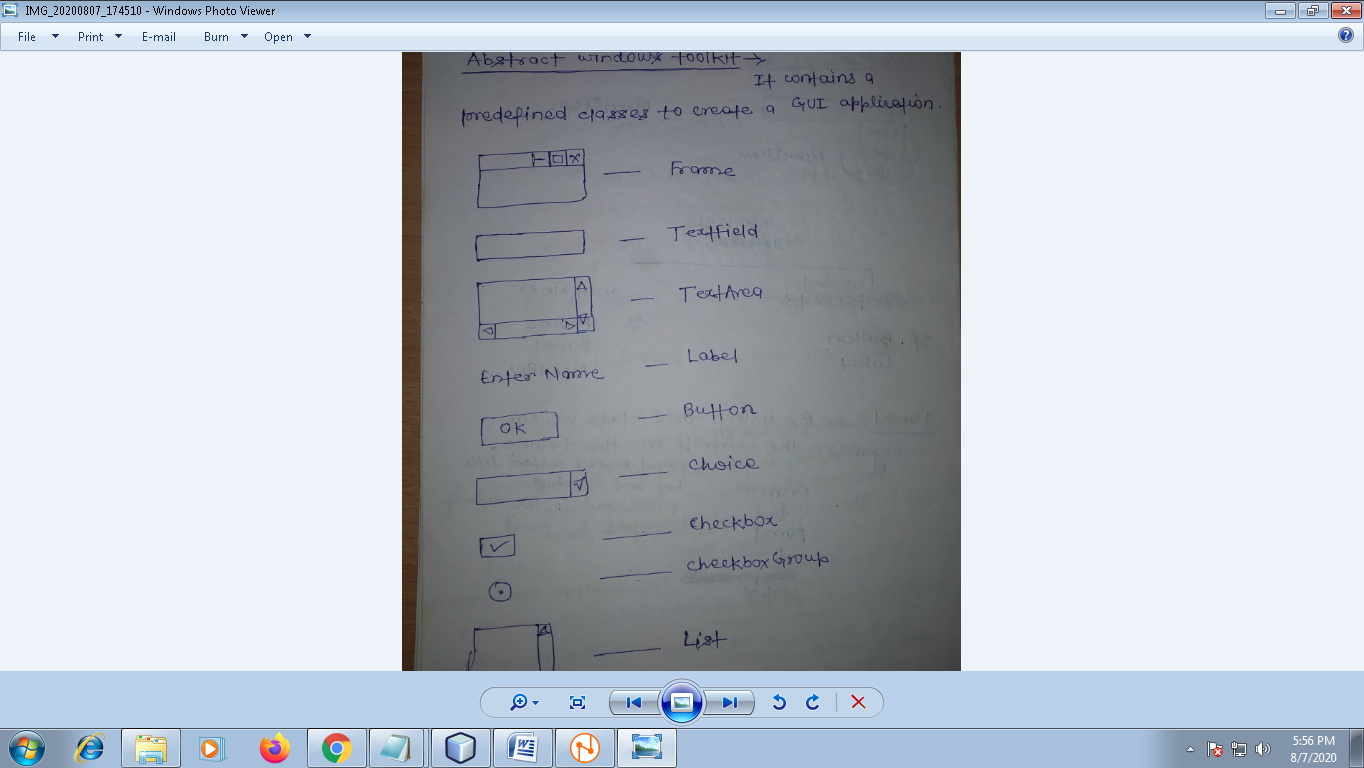 IMG_20200807_174510 - Windows Photo Viewer
File Print E-mail Burn Open
Abstract windows toolkit →
It contains a
predefined classes to create a GUI application.
Frame
Textfield
TextArea
Enter Name — Label
OK — Button
choice
checkbox
checkboxGroup
List
5:56 PM
8/7/2020